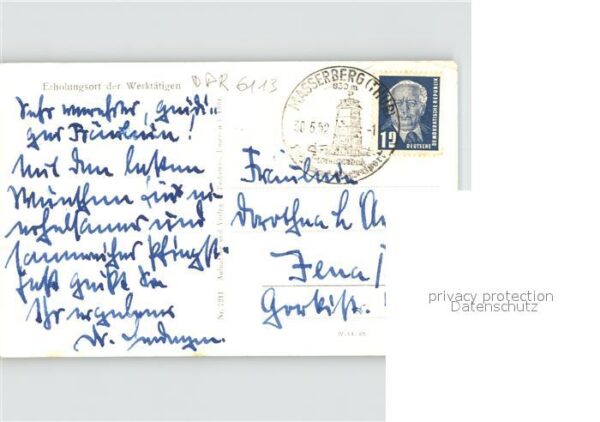 Erholungsort der Werktätigen
DDR 6113
Sehr verehrtes, gnädi-
ges Fräulein!
Mit den besten
Wünschen für ein
erholsames und
sonnenreiches Pfingst-
fest grüßt Sie
Ihr ergebener
Dr.
MASSERBERG (THÜR)
850 m
30.5.52
12
DEUTSCHE
DEMOKRATISCHE REPUBLIK
Fräulein
Dorothea
Jena
Gorkistr.
privacy protection
Datenschutz